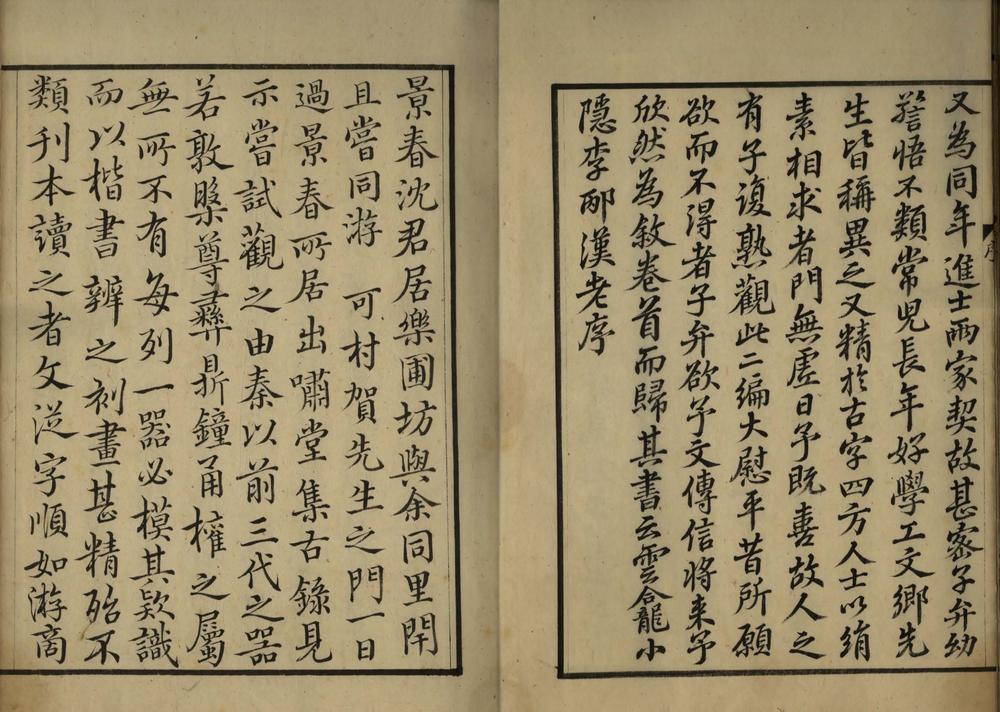 又為同年進士兩家契故甚密子弁幼
警悟不類常児長年好學工文鄉先
生皆稱異之又精於古字四方人士以絹
素相求者門無虛日予既喜故人之
有子復熟觀此二編大慰平昔所願
欲而不得者子弁欲予文傳信將来予
欣然為敘卷首而歸其書云雲龕小
隱李邴漢老序
序
景春沈君居樂圃坊與余同里閈
且嘗同游 可村賀先生之門一日
過景春所居出嘯堂集古錄見
示嘗試觀之由秦以前三代之器
若敦槃尊彞鼎鐘甬權之屬
無所不有每列一器必模其欵識
而以楷書辨之刻畫甚精殆不
類刊本讀之者文從字順如游商